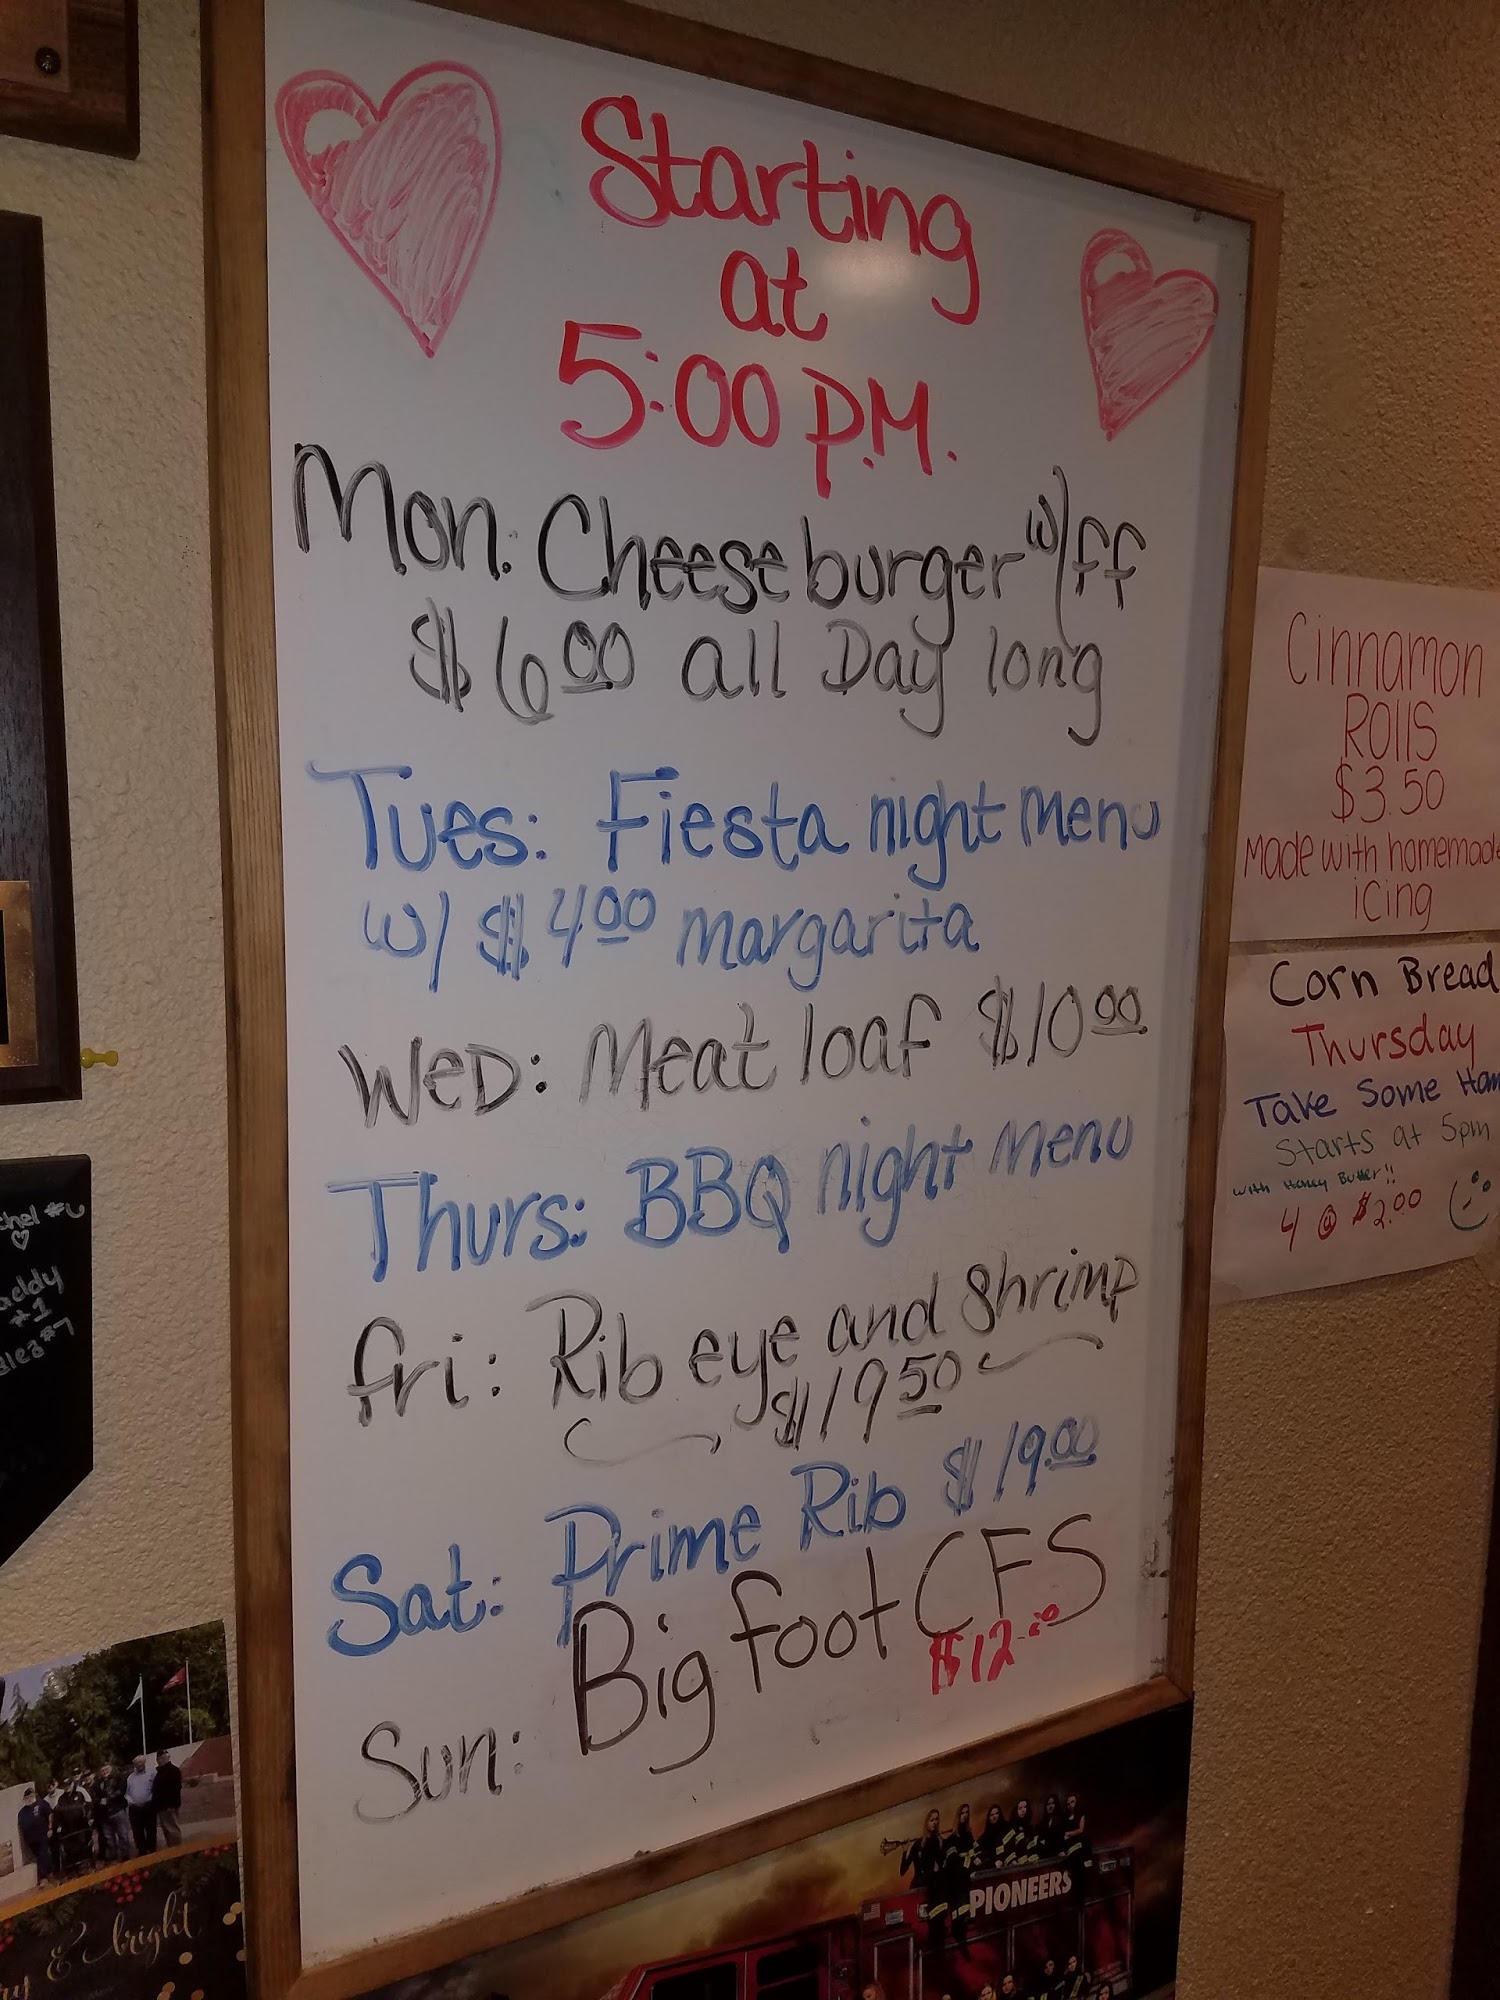 Starting
at
5:00 P.M.
Mon: Cheeseburger w/ff
$6.00 all Day long
Tues: Fiesta night Menu
w/ $4.00 margarita
WeD: Meat loaf $10.00
Thurs: BBQ night Menu
fri: Rib eye and Shrimp
$19.50
Sat: Prime Rib $19.00
Sun: Big foot CFS
$12.00
Cinnamon
Rolls
$3.50
Made with homemade
icing
Corn Bread
Thursday
Take Some
Starts at 5pm
with Honey Butter!!
4 @ $2.00
#1
& bright
PIONEERS